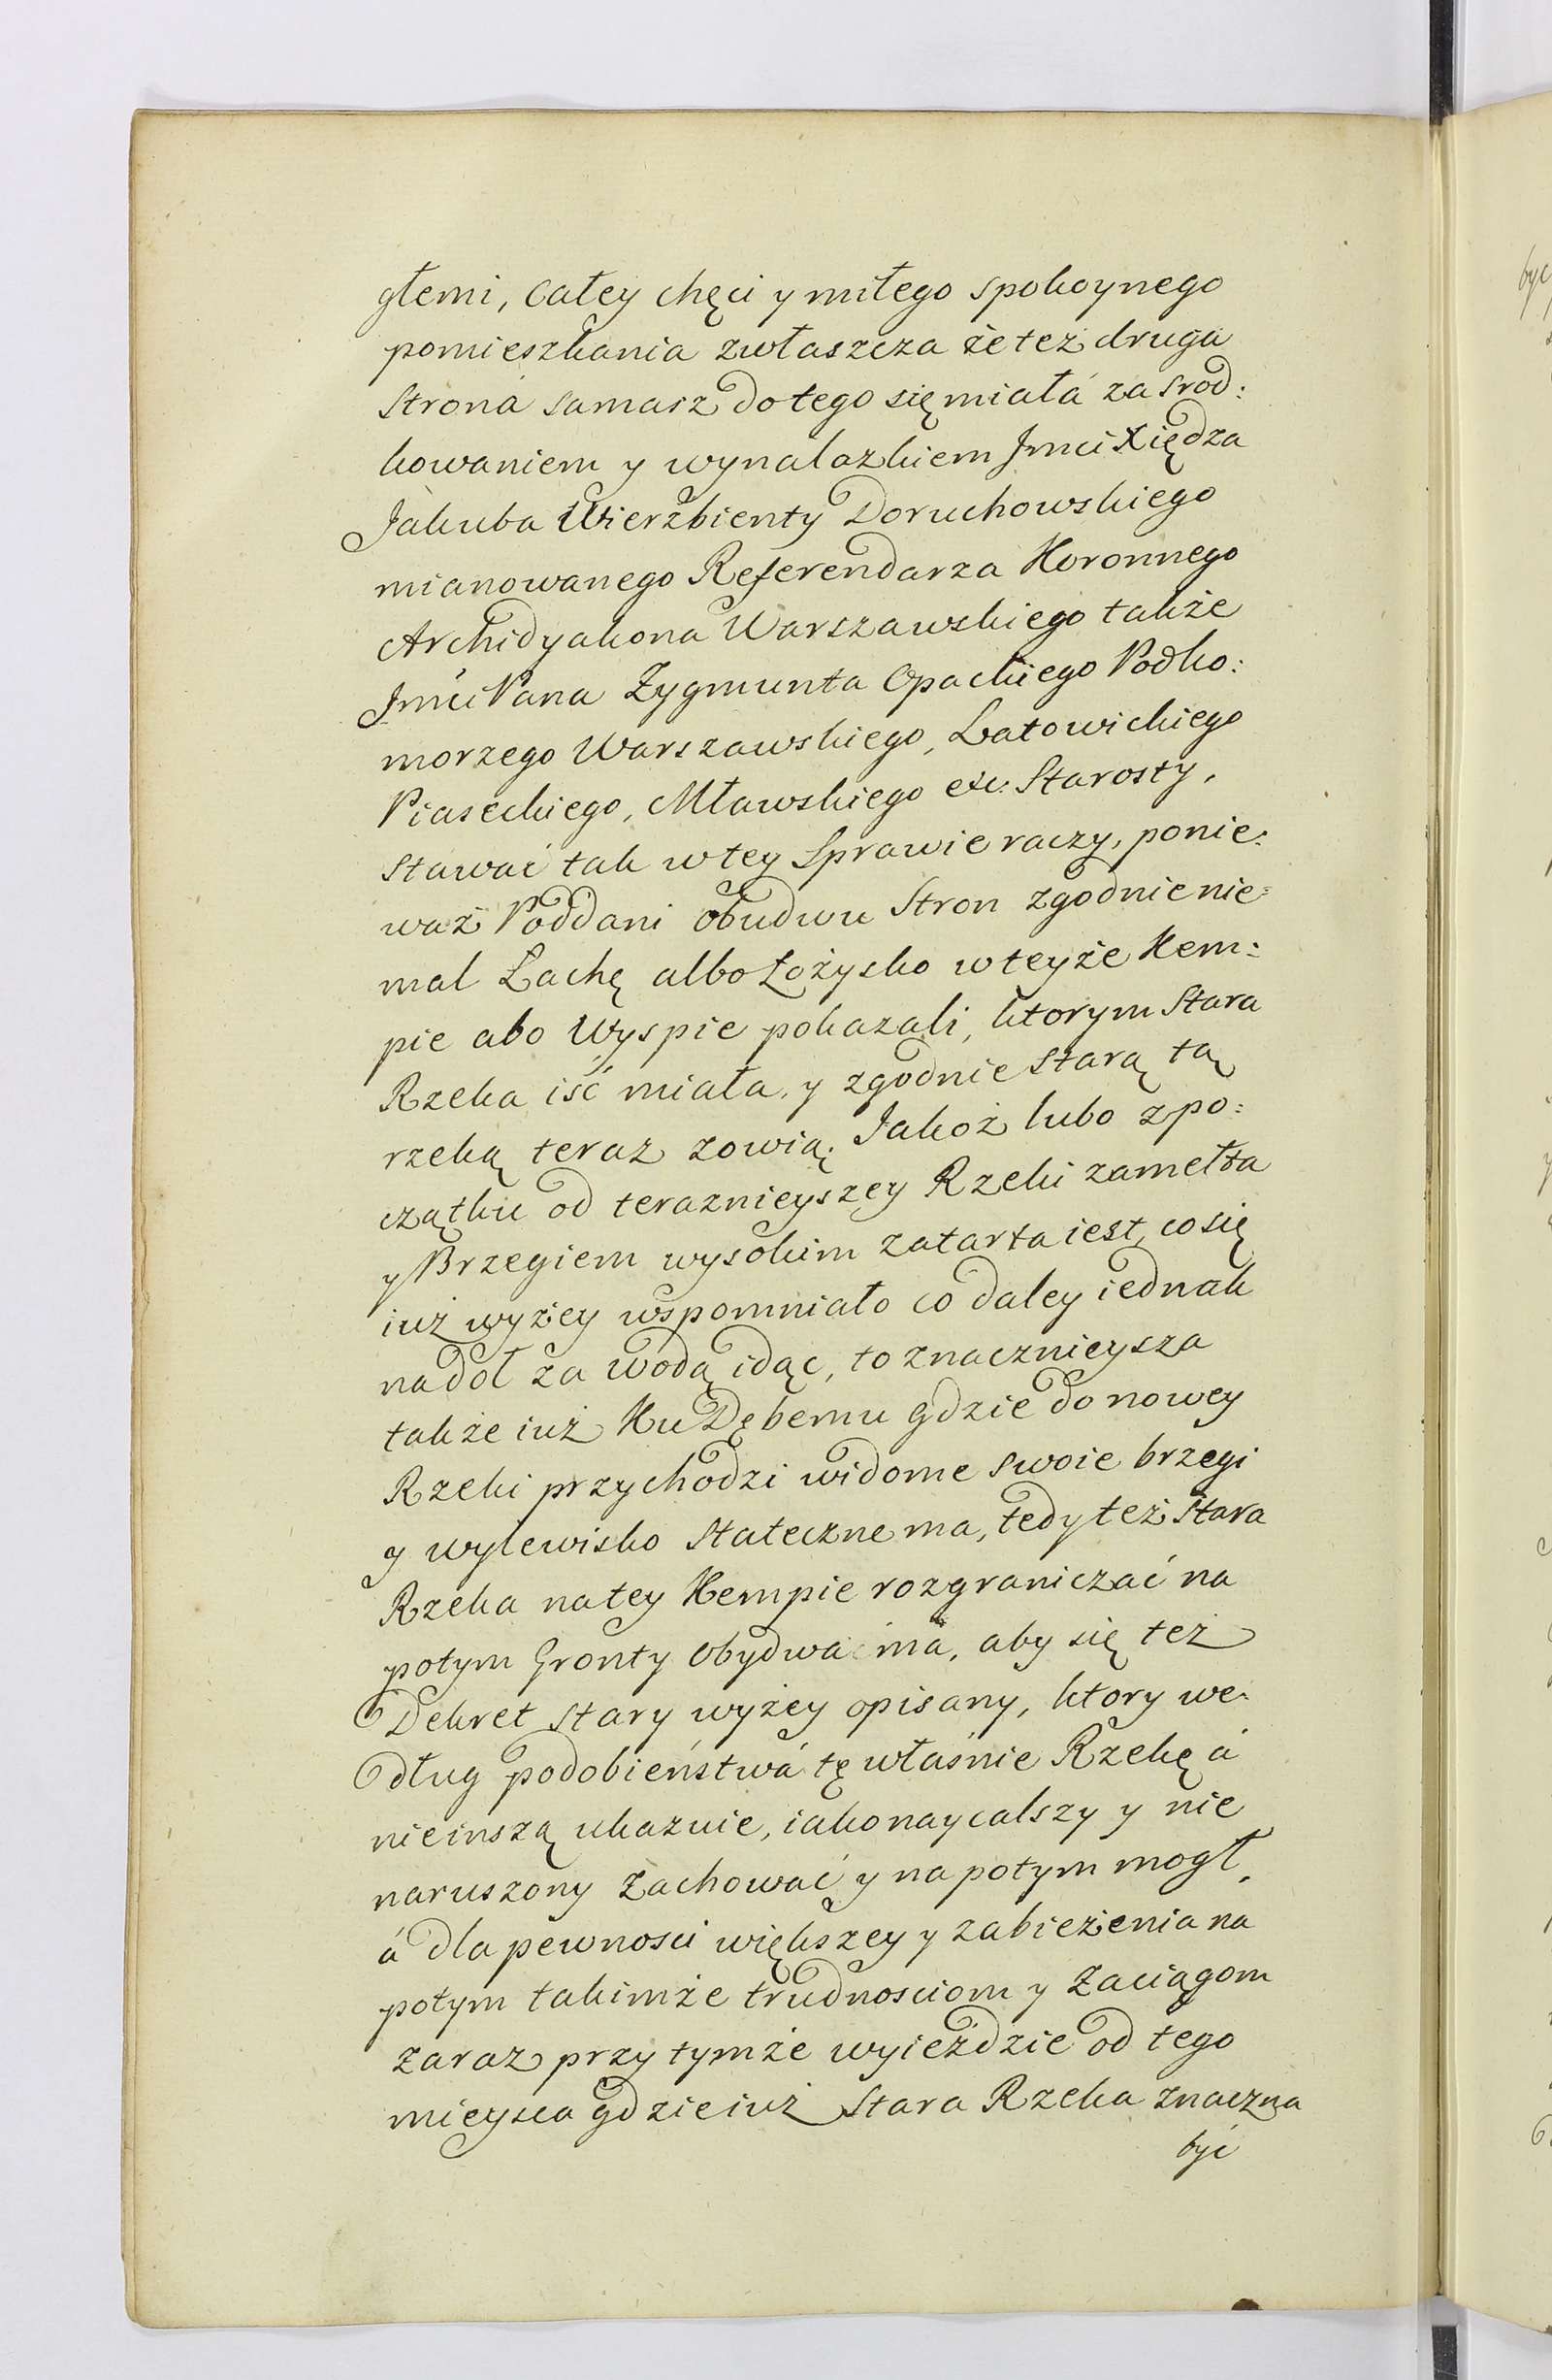 głemi, całey chęci y miłego spokoynego
pomieszkania zwłaszcza że też druga
Strona samasz do tego się miała za srod:
kowaniem y wynalazkiem Jmci Xiędza
Jakuba Wierzbienty Doruchowskiego
mianowanego Referendarza Koronnego
Archidyakona Warszawskiego także
Jmci Pana Zygmunta Opackiego Podko:
morzego Warszawskiego, Latowickiego
Piaseckiego, Mławskiego etc: Starosty,
stawać tak w tey Sprawie raczy, ponie:
waż Poddani obudwu Stron zgodnie nie:
mal Łachę albo Łożysko w teyże Kem:
pie abo Wyspie pokazali, ktorym Stara
Rzeka iść miała, y zgodnie starą tą
rzeką teraz zowią. Jakoż lubo z po:
czątku od teraznieyszey Rzeki zamełta
y Brzegiem wysokim zatarta iest, co się
iuż wyżey wspomniało co daley iednak
na doł za wodą idąc, to znacznieysza
także iuż Ku Dębemu gdzie do nowey
Rzeki przychodzi widome swoie brzegi
y wylewisko Stateczne ma, tedy też Stara
Rzeka na tey Kempie rozgraniczać na
potym Gronty obydwa ma, aby się też
Dekret stary wyżey opisany, ktory we:
dług podobieństwá tę właśnie Rzekę á
nie inszą ukazuie, iako naycalszy y nie
naruszony zachować y na potym mogł,
á dla pewności większey y zabieżenia na
potym takimże trudnosciom y Zaciągom
zaraz przy tymże wyieździe od tego
mieysca gdzie iuż Stara Rzeka znaczna
być
być